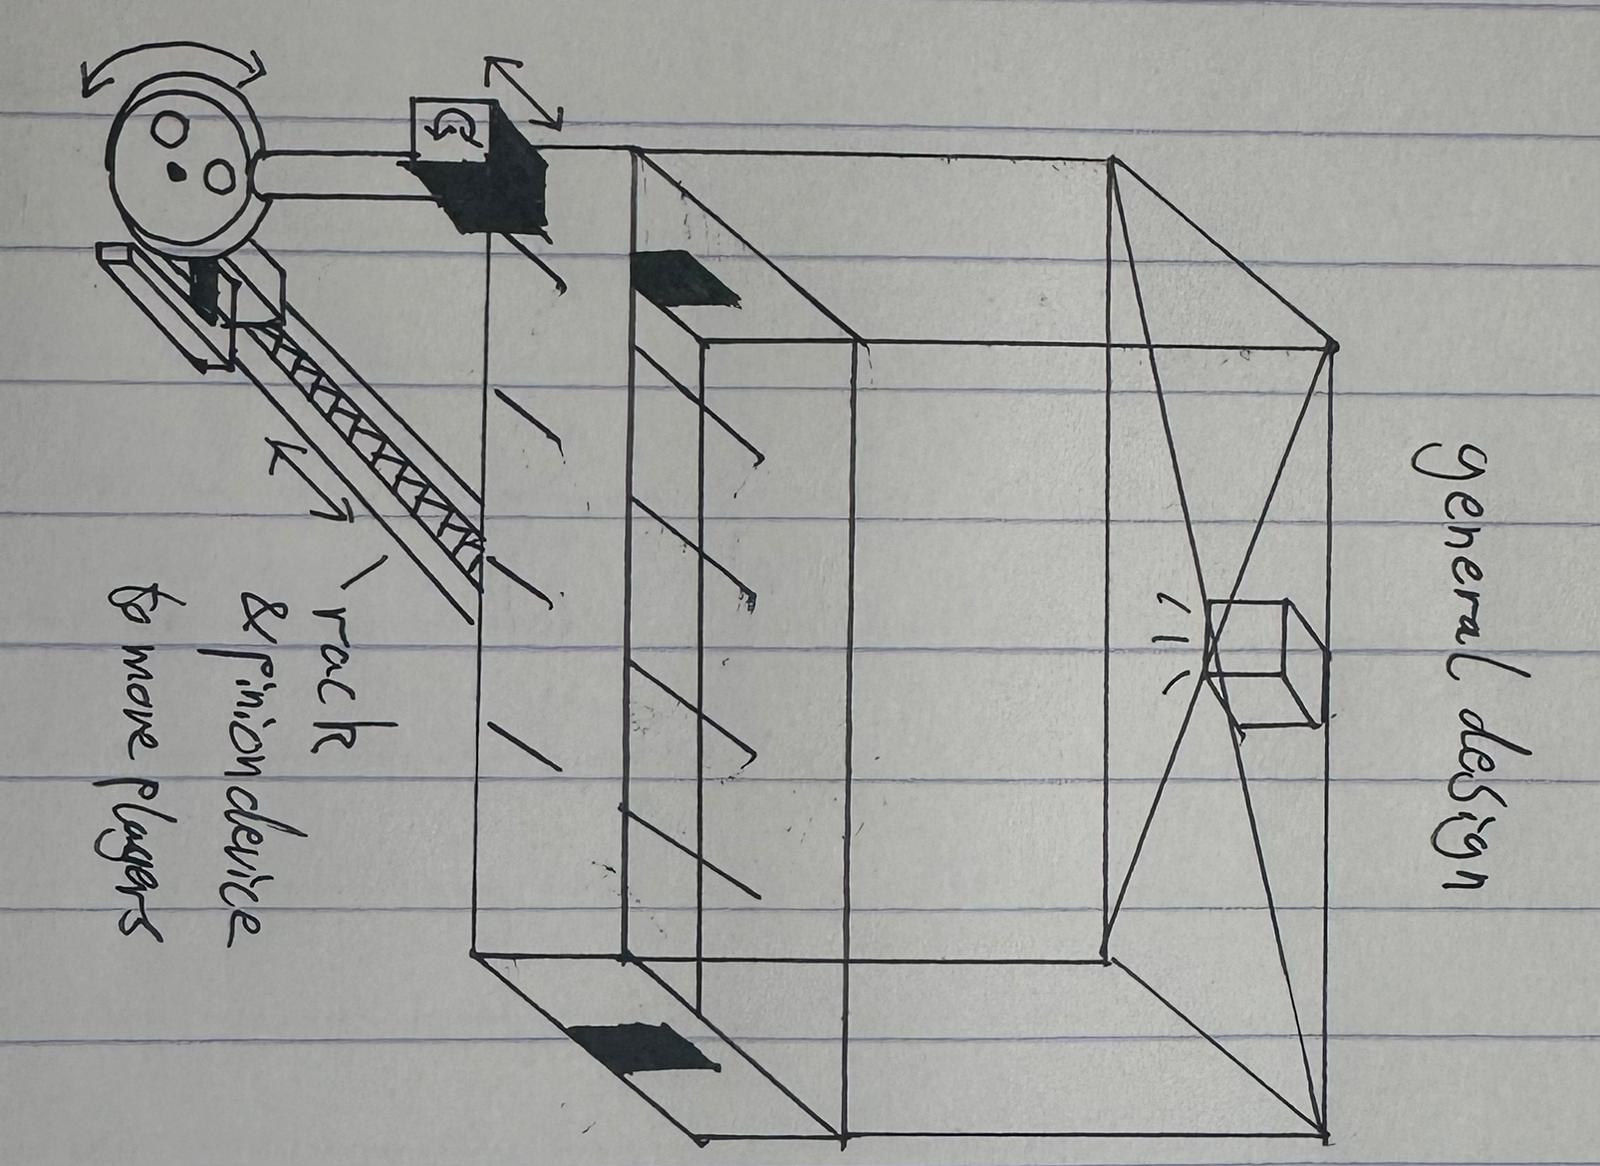 general design
rack
& pinion device
to move players